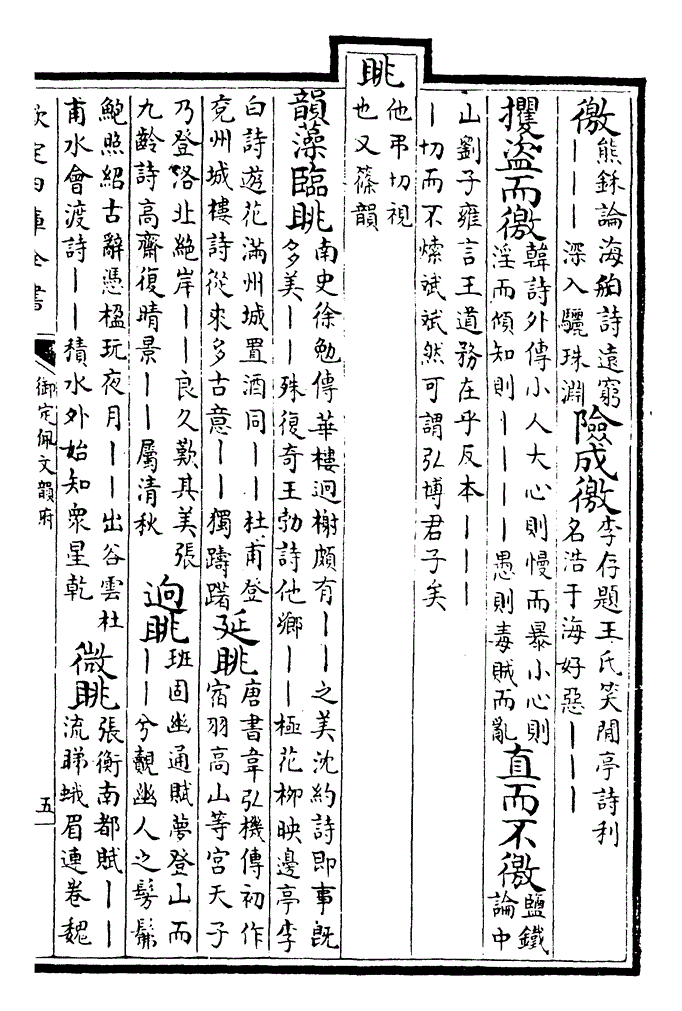 徼
熊鉌論海舶詩遠窮
丨丨丨深入驪珠淵
險成徼
李存題王氏笑閒亭詩利
名浩于海好惡丨丨丨
攫盗而徼
韓詩外傳小人大心則慢而暴小心則
淫而傾知則丨丨丨丨愚則毒賊而亂
直而不徼
鹽鐵
論中
山劉子雍言王道務在乎反本丨丨丨
丨切而不㷇斌斌然可謂弘博君子矣
眺
他弔切視
也又篠韻
韻藻臨眺
南史徐勉傳華樓迥榭頗有丨丨之美沈約詩即事既
多美丨丨殊復奇王勃詩他鄉丨丨極花柳映邊亭李
白詩遊花滿州城置酒同丨丨杜甫登
兖州城樓詩從來多古意丨丨獨躊躇
延眺
唐書韋弘機傳初作
宿羽高山等宮天子
乃登洛北絶岸丨丨良久歎其美張
九齡詩高齋復晴景丨丨屬清秋
迥眺
班固幽通賦夢登山而
丨丨兮覿幽人之髣髴
鮑照紹古辭憑楹玩夜月丨丨出谷雲杜
甫水會渡詩丨丨積水外始知衆星乾
微眺
張衡南都賦丨丨
流睇蛾眉連卷魏
欽定四庫全書
御定佩文韻府
五